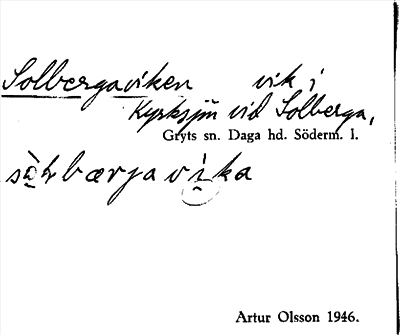 Solbergaviken vik i
Kyrksjön vid Solberga,
Gryts sn. Daga hd. Söderm. l.
sòlbærjavika
Artur Olsson 1946.